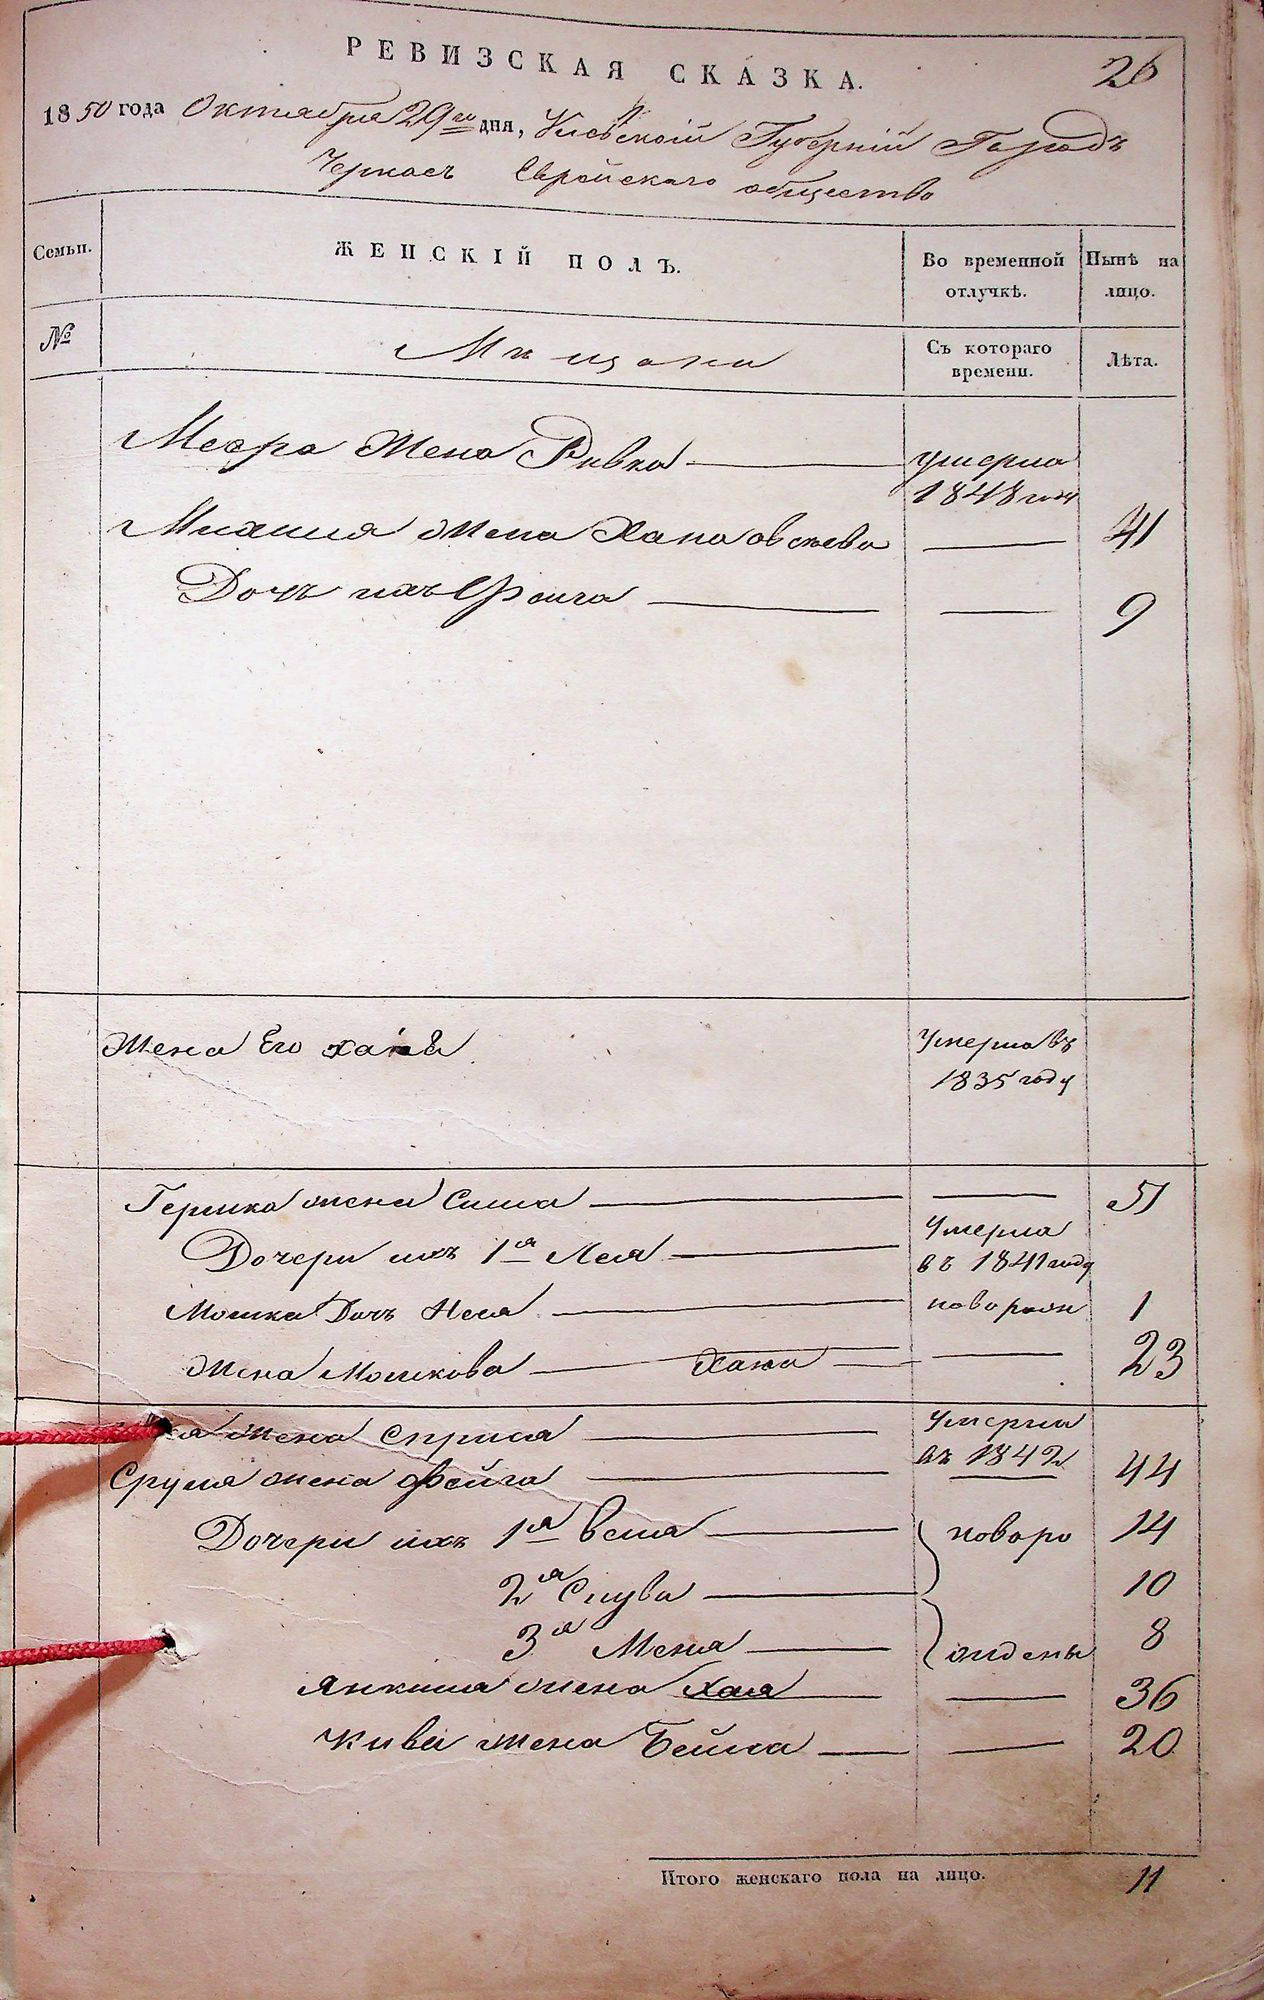 РЕВИЗСКАЯ СКАЗКА.
26
1850 года Октября 29го дня, Киевской Губерній Городъ
Черкасъ Еврейскаго общество
Семьи. ЖЕНСКІЙ ПОЛЪ. Во временной отлучкѣ. Нынѣ на лицо.
№ Мѣщани Съ котораго времени. Лѣта.
Жена Ривка умерла
1848 году
жена 41
Дочь ихъ Фейга 9
Жена Его умерла въ
1835 году
Гершка жена Сима 51
Дочери ихъ 1я Лея умерла
въ 1841 году
Мошка Дочь Неся новорож 1
Жена Мошкова Хана 23
жена умерла
въ 1842
Сруля жена Фейга 44
Дочери ихъ 1я новоро 14
2я 10
3я ждены 8
Янкиля жена Хая 36
Кивы жена Бейла 20
Итого женскаго пола на лицо. 11